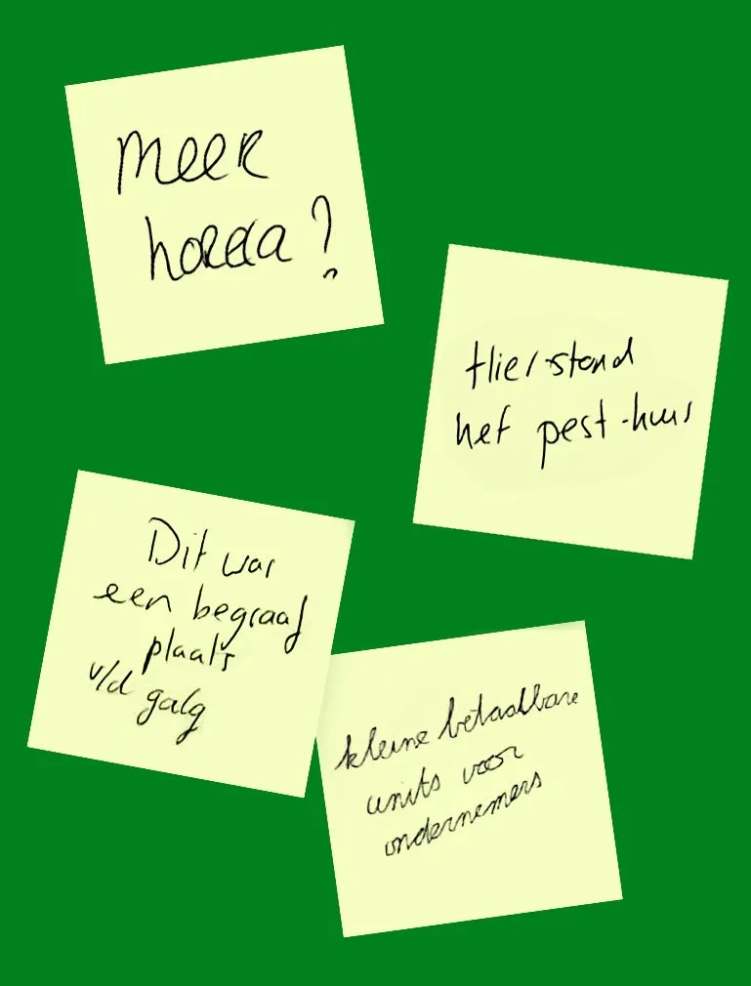 meer
horeca?
Hier stond
het pest-huis
Dit was
een begraaf
plaats
v/d
galg
kleine betaalbare
units voor
ondernemers